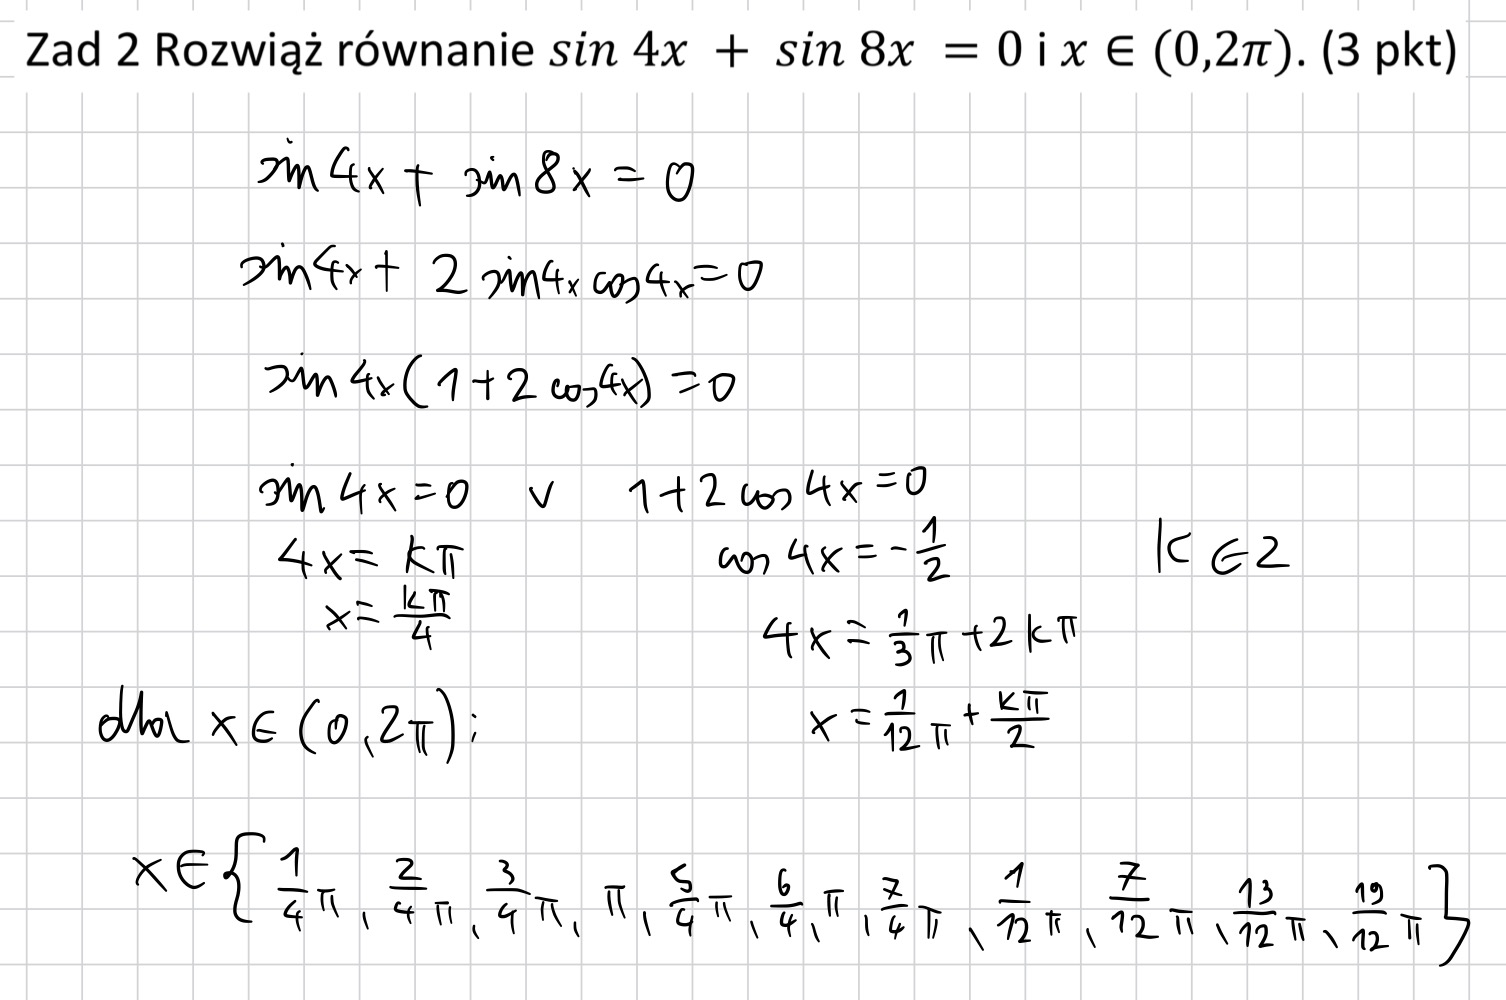 Zad 2 Rozwiąż równanie sin 4x + sin 8x = 0 i x ∈ (0,2π). (3 pkt)
sin 4x + sin 8x = 0
sin 4x + 2 sin 4x cos 4x = 0
sin 4x (1 + 2 cos 4x) = 0
sin 4x = 0 ∨ 1 + 2 cos 4x = 0
4x = kπ cos 4x = -1/2 k ∈ Z
x = kπ/4 4x = 1/3 π + 2kπ
dla x ∈ (0, 2π): x = 1/12 π + kπ/2
x ∈ {1/4 π, 2/4 π, 3/4 π, π, 5/4 π, 6/4, π, 7/4 π, 1/12 π, 7/12 π, 13/12 π, 19/12 π}